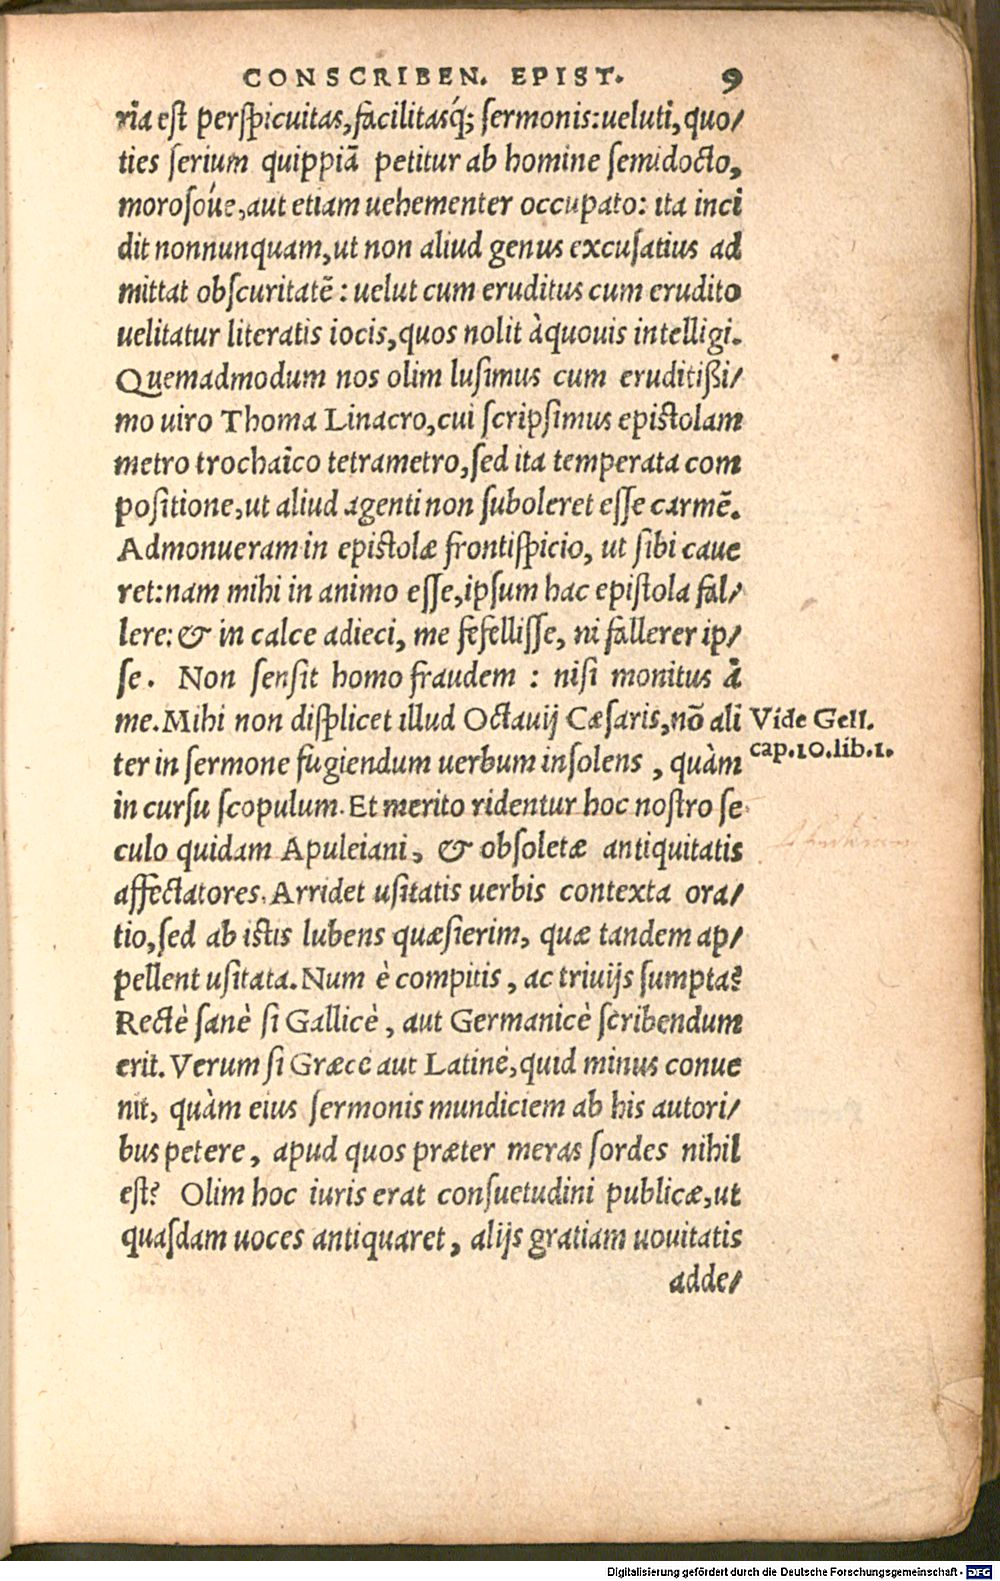 CONSCRIBEN. EPIST. 9
ria est perspicuitas, facilitasq́; sermonis: ueluti, quo/
ties serium quippiã petitur ab homine semidocto,
morosoúe, aut etiam uehementer occupato: ita inci
dit nonnunquam, ut non aliud genus excusatius ad
mittat obscuritatẽ: uelut cum eruditus cum erudito
uelitatur literatis iocis, quos nolit àquouis intelligi.
Quemadmodum nos olim lusimus cum eruditißi/
mo uiro Thoma Linacro, cui scripsimus epistolam
metro trochaico tetrametro, sed ita temperata com
positione, ut aliud agenti non suboleret esse carmẽ.
Admonueram in epistolæ frontispicio, ut sibi caue
ret: nam mihi in animo esse, ipsum hac epistola fal/
lere: & in calce adieci, me fefellisse, ni fallerer ip/
se. Non sensit homo fraudem: nisi monitus à
me. Mihi non displicet illud Octauij Cæsaris, nõ ali
Vide Gell.
cap.10.lib.1.
ter in sermone fugiendum uerbum insolens, quàm
in cursu scopulum. Et merito ridentur hoc nostro se
culo quidam Apuleiani, & obsoletæ antiquitatis
affectatores. Arridet usitatis uerbis contexta ora/
tio, sed ab istis lubens quæsierim, quæ tandem ap/
pellent usitata. Num è compitis, ac triuijs sumpta?
Rectè sanè si Gallicè, aut Germanicè scribendum
erit. Verum si Græcè aut Latinè, quid minus conue
nit, quàm eius sermonis mundiciem ab his autori/
bus petere, apud quos præter meras sordes nihil
est? Olim hoc iuris erat consuetudini publicæ, ut
quasdam uoces antiquaret, alijs gratiam uouitatis
adde/
Digitalisierung gefördert durch die Deutsche Forschungsgemeinschaft - DFG